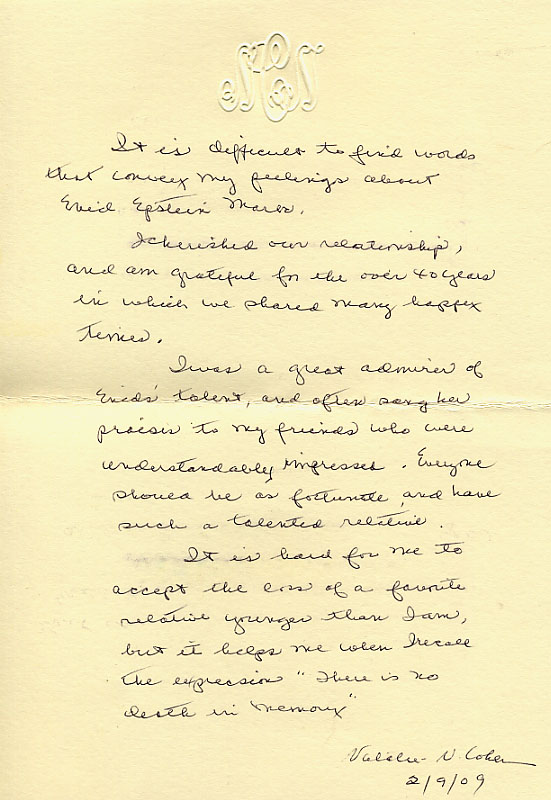 It is difficult to find words
that convey my feelings about
Enid Epstein Marks.
I cherished our relationship,
and am grateful for the over 40 years
in which we shared many happy
times.
I was a great admirer of
Enids' talent, and often sang her
praises to my friends who were
understandably impressed. Everyone
should be as fortunte and have
such a talented relative.
It is hard for me to
accept the loss of a favorite
relative younger than I am,
but it helps me when I recall
the expression "There is no
death in memory"
Natalie N. Cohen
2/9/09